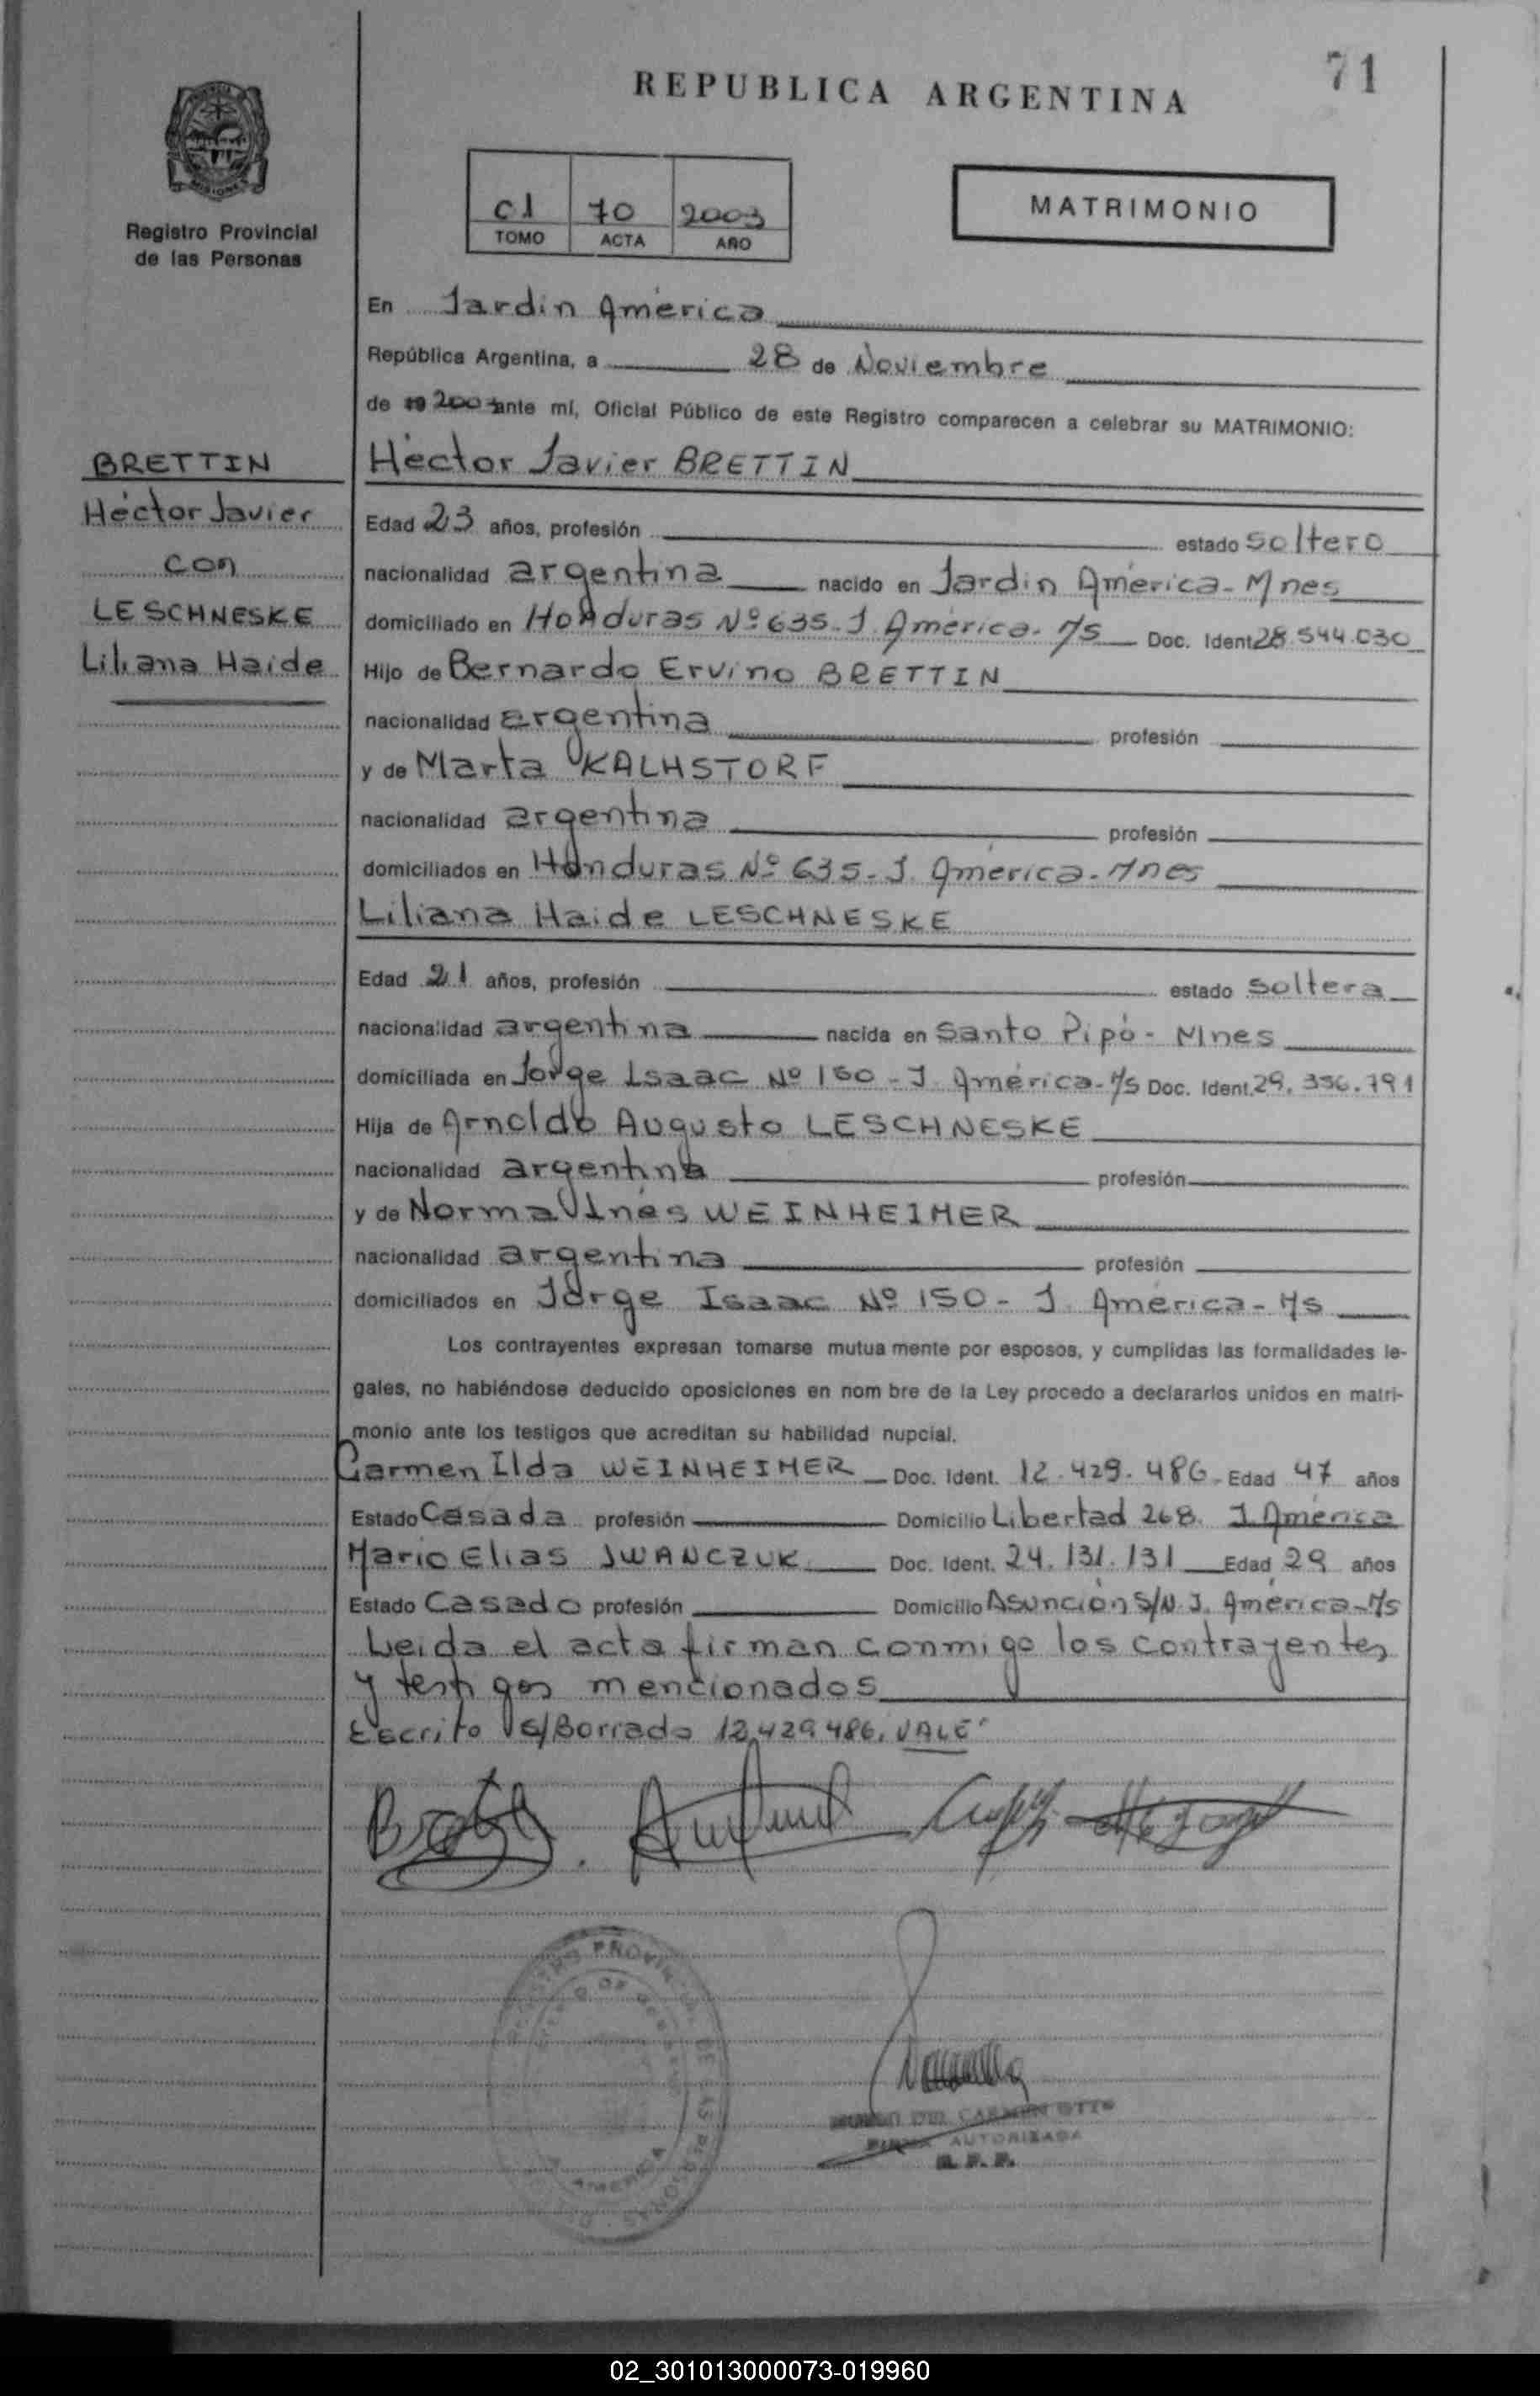 71
REPUBLICA ARGENTINA
MATRIMONIO
01 70 2003
TOMO ACTA AÑO
Registro Provincial
de las Personas
En Jardín América
República Argentina, a 28 de Noviembre
de 19 2003 ante mí, Oficial Público de este Registro comparecen a celebrar su MATRIMONIO:
BRETTIN
Héctor Javier
con
LESCHNESKE
Liliana Haide
Héctor Javier BRETTIN
Edad 23 años, profesión estado soltero
nacionalidad argentina nacido en Jardín América - Mnes
domiciliado en Honduras Nº 635 - J. América - M/s Doc. Ident. 28.544.030
Hijo de Bernardo Ervino BRETTIN
nacionalidad argentina profesión
y de Marta KALHSTORF
nacionalidad argentina profesión
domiciliados en Honduras Nº 635 - J. América - Mnes
Liliana Haide LESCHNESKE
Edad 21 años, profesión estado soltera
nacionalidad argentina nacida en Santo Pipó - Mnes
domiciliada en Jorge Isaac Nº 150 - J. América - M/s Doc. Ident. 29.356.791
Hija de Arnoldo Augusto LESCHNESKE
nacionalidad argentina profesión
y de Norma Inés WEINHEIMER
nacionalidad argentina profesión
domiciliados en Jorge Isaac Nº 150 - J. América - M/s
Los contrayentes expresan tomarse mutua mente por esposos, y cumplidas las formalidades le-
gales, no habiéndose deducido oposiciones en nom bre de la Ley procedo a declararlos unidos en matri-
monio ante los testigos que acreditan su habilidad nupcial.
Carmen Ilda WEINHEIMER Doc. Ident. 12.429.486 - Edad 47 años
Estado Casada profesión Domicilio Libertad 268. J. América
Mario Elias IWANCZUK Doc. Ident. 24.131.131 Edad 29 años
Estado Casado profesión Domicilio Asunción S/N J. América - M/s
Leida el acta firman conmigo los contrayentes
y testigos mencionados
Escrito s/Borrado 12.429.486. VALE
DEL CARMEN OTTO
FIRMA AUTORIZADA
R. P. P.
02_301013000073-019960